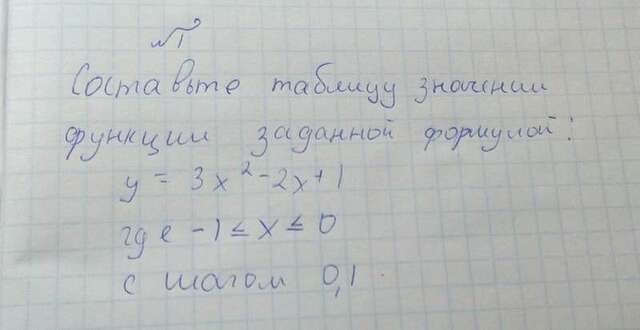 №1
Составьте таблицу значений
функции заданной формулой:
y = 3x²-2x+1
где -1 ≤ x ≤ 0
с шагом 0,1.